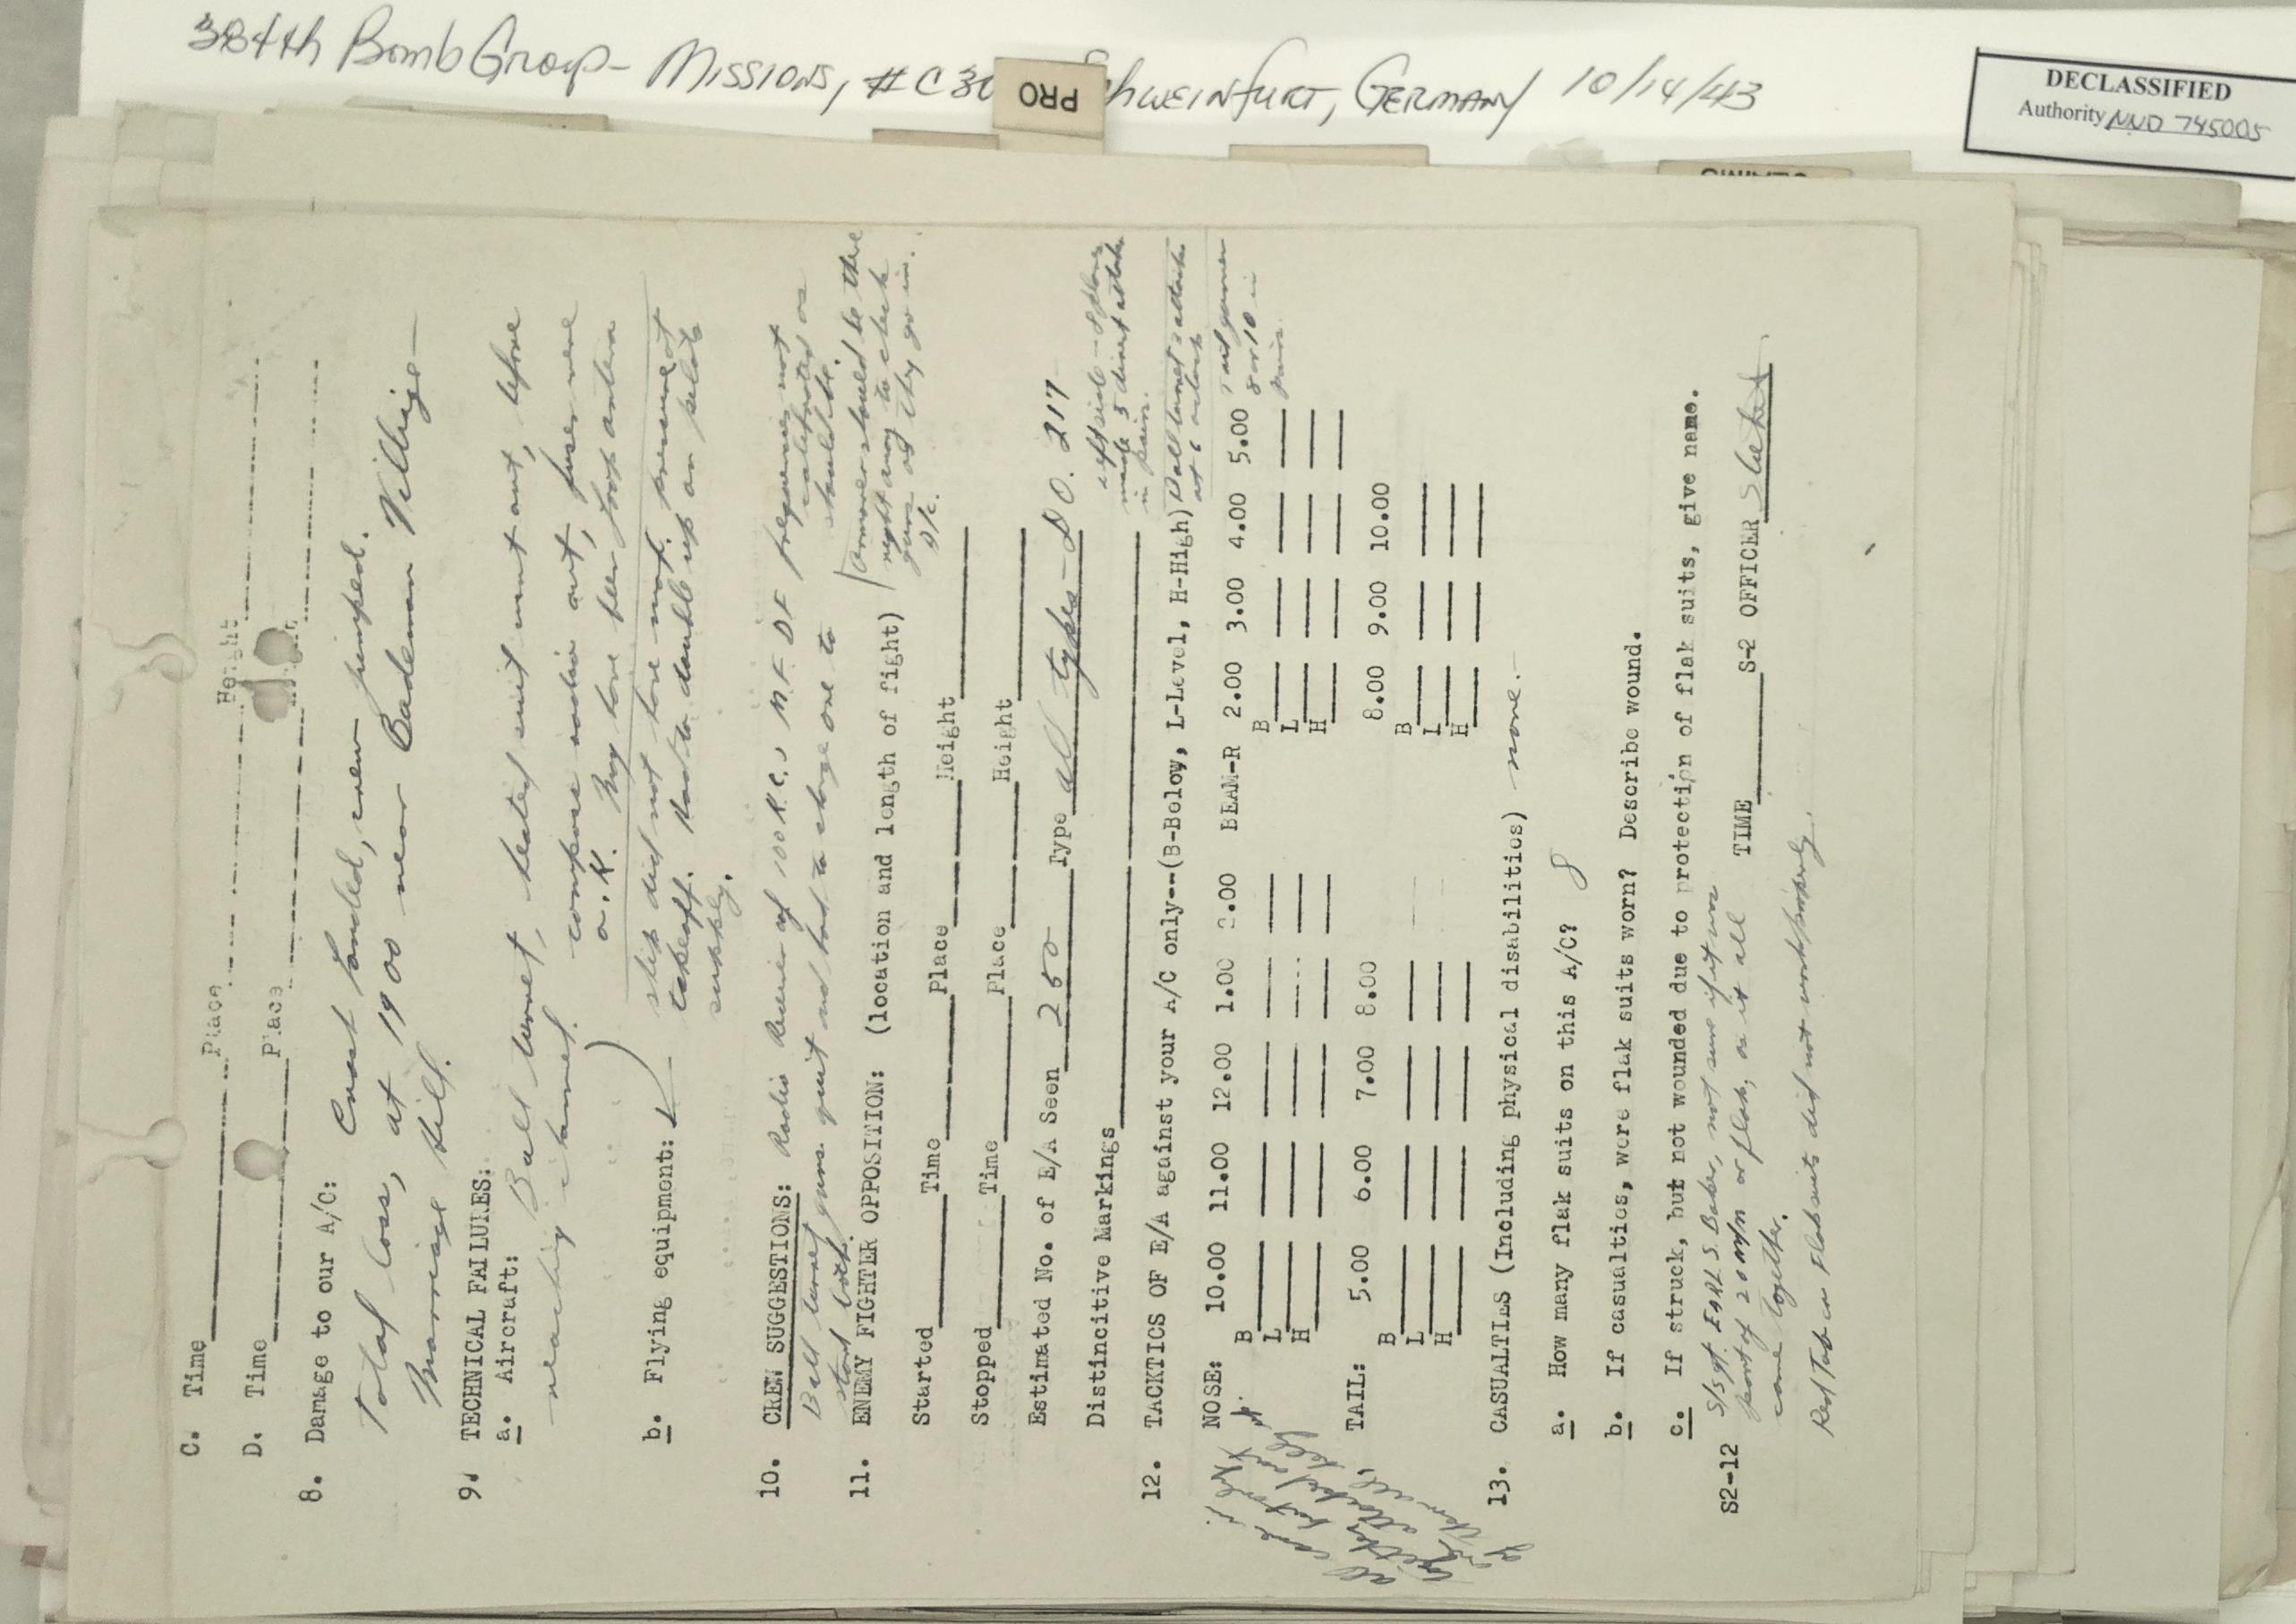 384th Bomb Group - Missions, #C30 Schweinfurt, Germany 10/14/43
PRO
DECLASSIFIED
Authority NND 745005
C. Time Place Height
D. Time Place
8. Damage to our A/C: Crash landed, crew jumped.
Total loss, at 1900 near Bademan Village -
hill.
9. TECHNICAL FAILURES:
a. Aircraft: Ball turret, heated suit went out, before
reaching channel. compass radio out, fuses were
o.K. May have been loop antenna
b. Flying equipment:
ship did not have
takeoff. Had to double up on
supply.
10. CREW SUGGESTIONS: Radio 100 K.C., M.F. D.F frequencies not
calibrated as
should be.
Ball turret guns quit and had to charge one to
start both.
Armorer should be there
right away to check
guns as they go in.
A/C.
11. ENEMY FIGHTER OPPOSITION: (location and length of fight)
Started Time Place Height
Stopped Time Place Height
Estimated No. of E/A Seen 250 Type all types - DO. 217
Distincitive Markings
Left side -
made 5 attacks
in pairs.
12. TACKTICS OF E/A against your A/C only--(B-Below, L-Level, H-High)
Ball turret 2 attacks
at 6 o'clock
Tail gunner
8 or 10 in
pairs.
NOSE: 10.00 11.00 12.00 1.00 2.00 BEAM-R 2.00 3.00 4.00 5.00
B B
L L
H H
TAIL: 5.00 6.00 7.00 8.00 8.00 9.00 10.00
B B
L L
H H
13. CASUALTIES (Including physical disabilities) none.-
a. How many flak suits on this A/C? 8
b. If casualties, were flak suits worn? Describe wound.
c. If struck, but not wounded due to protection of flak suits, give name.
S/Sgt. EARL S. Baker, not sure if it was
part of 20 m/m or flak, as it all
came together.
S2-12 TIME S-2 OFFICER
Red Tab on Flak suits did not work properly.